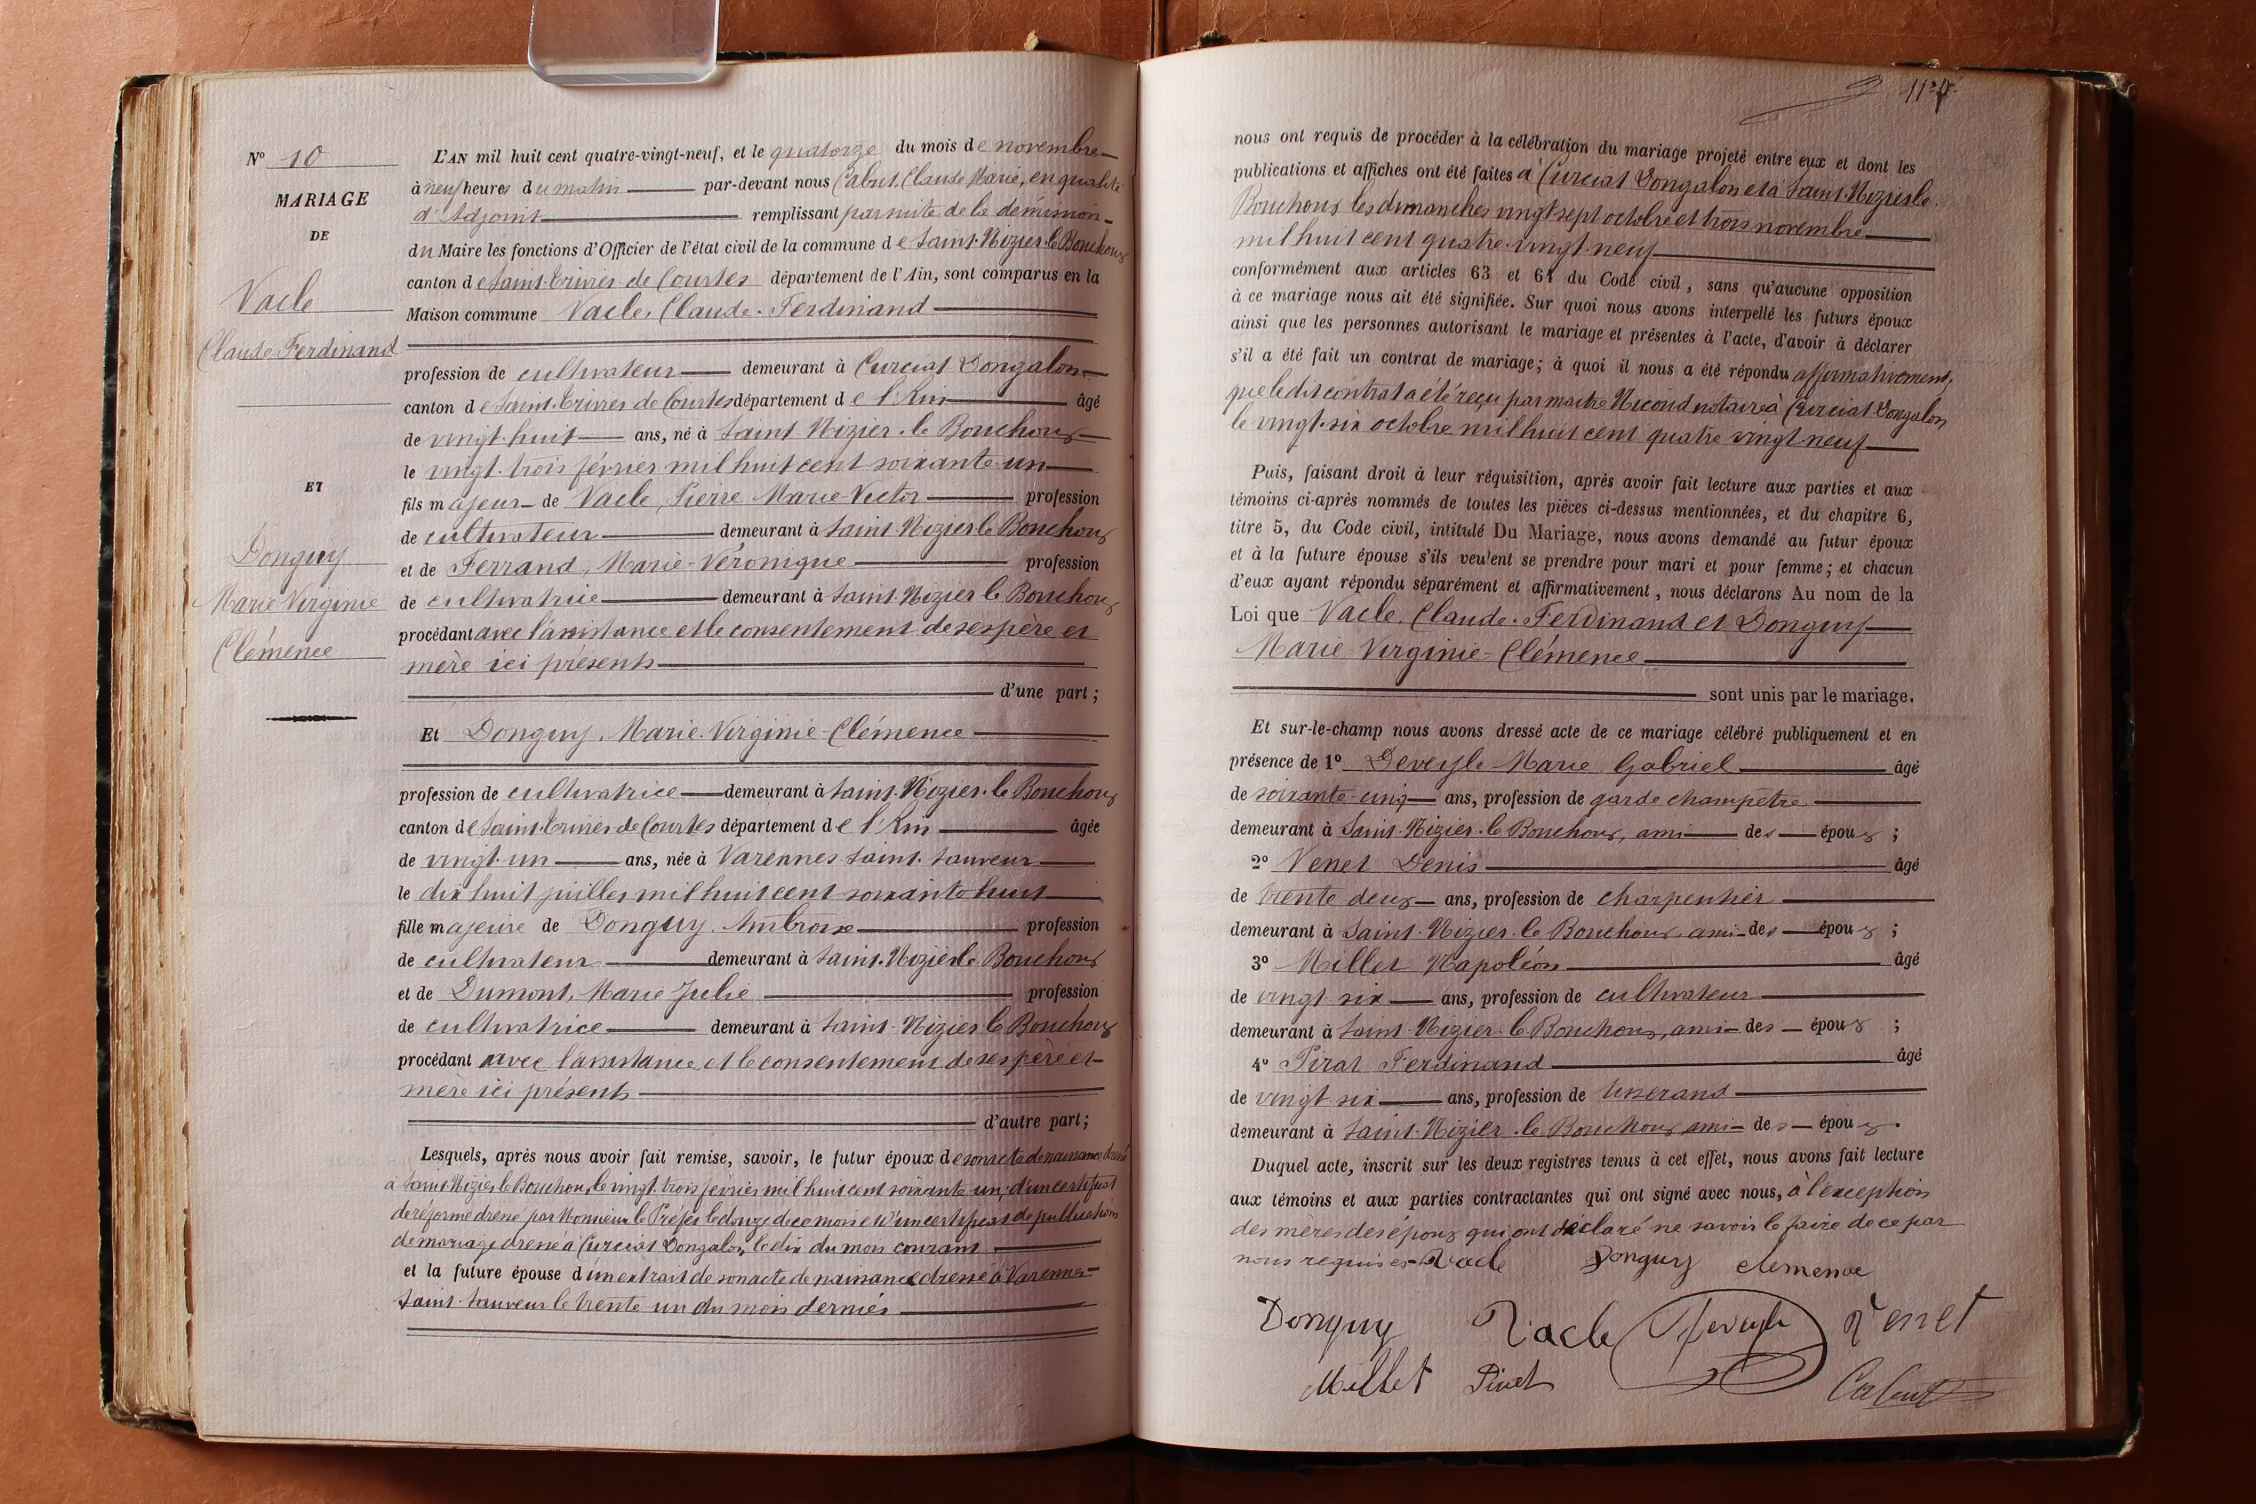 N° 10
MARIAGE
DE
Vacle
Claude Ferdinand
ET
Donguy
Marie Virginie
Clémence
L'AN mil huit cent quatre-vingt-neuf, et le quatorze du mois de novembre
à neuf heures du matin par-devant nous Cabut, Claude Marie, en qualité
d'Adjoint remplissant par suite de la démission
du Maire les fonctions d'Officier de l'état civil de la commune de Saint-Nizier-le-Bouchoux
canton de Saint-Trivier de Courtes département de l'Ain, sont comparus en la
Maison commune Vacle, Claude-Ferdinand
profession de cultivateur demeurant à Curciat Dongalon
canton de Saint-Trivier de Courtes département de l'Ain âgé
de vingt-huit ans, né à Saint Nizier-le Bouchoux
le vingt-trois février mil huit cent soixante-un
fils majeur de Vacle, Pierre Marie-Victor profession
de cultivateur demeurant à Saint-Nizier-le Bouchoux
et de Ferrand, Marie-Véronique profession
de cultivatrice demeurant à Saint-Nizier le Bouchoux
procédant avec l'assistance et le consentement de ses père et
mère ici présents
d'une part ;
Et Donguy, Marie-Virginie-Clémence
profession de cultivatrice demeurant à Saint-Nizier-le Bouchoux
canton de Saint-Trivier de Courtes département de l'Ain âgée
de vingt-un ans, née à Varennes Saint-Sauveur
le dix huit juillet mil huit cent soixante huit
fille majeure de Donguy Ambroise profession
de cultivateur demeurant à Saint-Nizier le Bouchoux
et de Dumont, Marie Julie profession
de cultivatrice demeurant à Saint-Nizier-le Bouchoux
procédant avec l'assistance et le consentement de ses père et
mère ici présents
d'autre part ;
Lesquels, après nous avoir fait remise, savoir, le futur époux de son acte de naissance dressé
à Saint Nizier le Bouchoux, le vingt-trois février mil huit cent soixante-un, d'un certificat
de réforme dressé par Monsieur le Préfet le douze de ce mois et d'un certificat de publications
de mariage dressé à Curciat Dongalon, le dix du mois courant
et la future épouse d'un extrait de son acte de naissance dressé à Varennes
Saint-Sauveur le trente un du mois dernier
117
nous ont requis de procéder à la célébration du mariage projeté entre eux et dont les
publications et affiches ont été faites à Curciat Dongalon et à Saint-Nizier le
Bouchoux les dimanches vingt sept octobre et trois novembre
mil huit cent quatre-vingt-neuf
conformément aux articles 63 et 64 du Code civil, sans qu'aucune opposition
à ce mariage nous ait été signifiée. Sur quoi nous avons interpellé les futurs époux
ainsi que les personnes autorisant le mariage et présentes à l'acte, d'avoir à déclarer
s'il a été fait un contrat de mariage ; à quoi il nous a été répondu affirmativement,
que le dit contrat a été reçu par maître Nicoud notaire à Curciat Dongalon
le vingt-six octobre mil huit cent quatre vingt neuf
Puis, faisant droit à leur réquisition, après avoir fait lecture aux parties et aux
témoins ci-après nommés de toutes les pièces ci-dessus mentionnées, et du chapitre 6,
titre 5, du Code civil, intitulé Du Mariage, nous avons demandé au futur époux
et à la future épouse s'ils veulent se prendre pour mari et pour femme ; et chacun
d'eux ayant répondu séparément et affirmativement, nous déclarons Au nom de la
Loi que Vacle, Claude-Ferdinand et Donguy
Marie-Virginie-Clémence
sont unis par le mariage.
Et sur-le-champ nous avons dressé acte de ce mariage célébré publiquement et en
présence de 1° Deveyle Marie Gabriel âgé
de soixante-cinq ans, profession de garde champêtre
demeurant à Saint-Nizier-le Bouchoux, ami des époux ;
2° Venet Denis âgé
de trente deux ans, profession de charpentier
demeurant à Saint-Nizier-le Bouchoux ami des époux ;
3° Millet Napoléon âgé
de vingt six ans, profession de cultivateur
demeurant à Saint-Nizier-le-Bouchoux, ami des époux ;
4° Pirat Ferdinand âgé
de vingt six ans, profession de tisserand
demeurant à Saint-Nizier-le Bouchoux ami des époux.
Duquel acte, inscrit sur les deux registres tenus à cet effet, nous avons fait lecture
aux témoins et aux parties contractantes qui ont signé avec nous, à l'exception
des mères des époux qui ont déclaré ne savoir le faire de ce par
nous requises Vacle Donguy clémence
Donguy Vacle Deveyle Venet
Millet Pirat Cabut